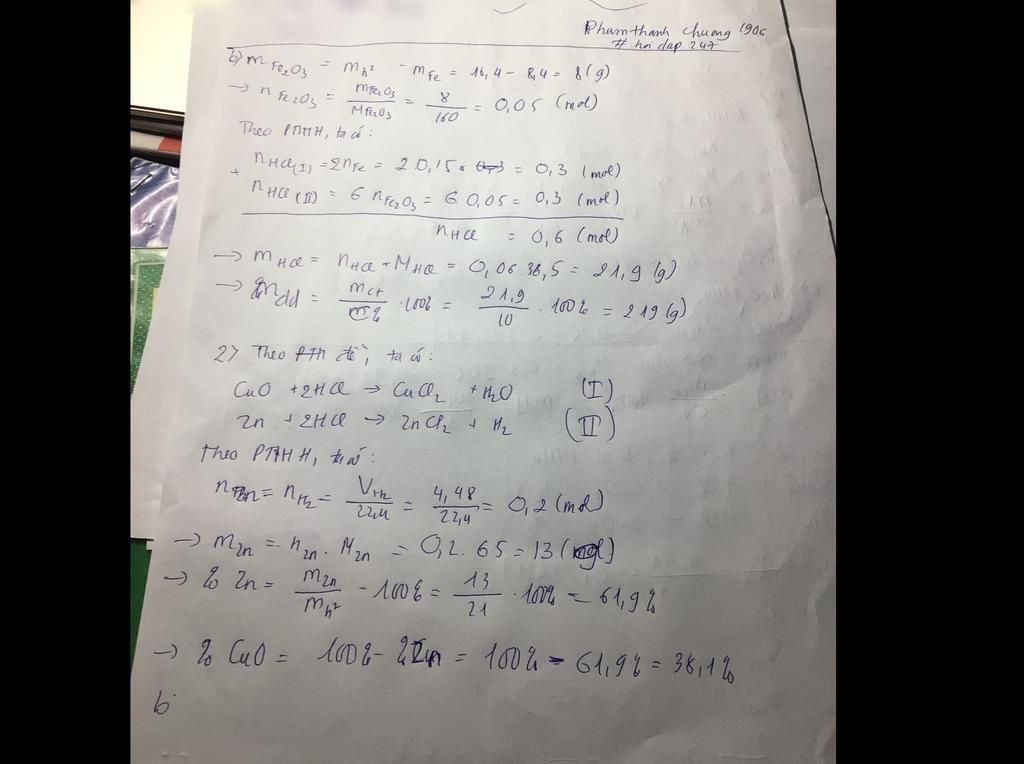 Phamthanh chuong 1906
# hoi dap 247
b) m Fe2O3 = m h² - m Fe = 16,4 - 8,4 = 8 (g)
→ n Fe2O3 = mFe2O3 / MFe2O3 = 8 / 160 = 0,05 (mol)
Theo PTHH, ta có:
+ nHCl(I) = 2nFe = 2 0,15 = 0,3 (mol)
nHCl(II) = 6 nFe2O3 = 6 0,05 = 0,3 (mol)
nHCl = 0,6 (mol)
→ mHCl = nHCl . MHCl = 0,06.36,5 = 21,9 (g)
→ mdd = mct / m% .100% = 21,9 / 10 . 100% = 219 (g)
2) Theo đề, ta có:
CuO + 2HCl → CuCl2 + H2O (I)
Zn + 2HCl → ZnCl2 + H2 (II)
Theo PTHH, ta có:
nZn = nH2 = VH2 / 22,4 = 4,48 / 22,4 = 0,2 (mol)
→ mZn = nZn . MZn = 0,2 . 65 = 13 (g)
→ % Zn = mZn / mh² - 100% = 13 / 21 . 100% = 61,9%
→ % CuO = 100% - %Zn = 100% - 61,9% = 38,1%
b